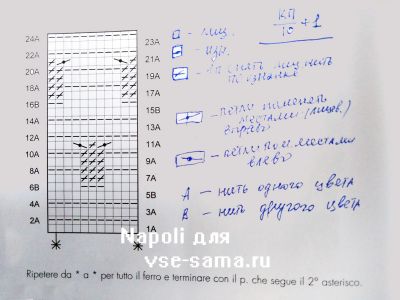 24A 23A
22A 21A
20A 19A
18A 17A
16B 15B
14A 13B
12A 11A
10A 9A
8A 7A
6B 5B
4A 3B
2A 1A
* *
□ – лиц.
– изн.
– п. снять лиц нить
по изнанке
– петли поменять
местами (лицев.)
вправо
– петли пом. местами
влево
А – нить одного цвета
В – нить другого цвета
КП
10 +1
Napoli для
vse-sama.ru
Ripetere da * a * per tutto il ferro e terminare con il p. che segue il 2° asterisco.